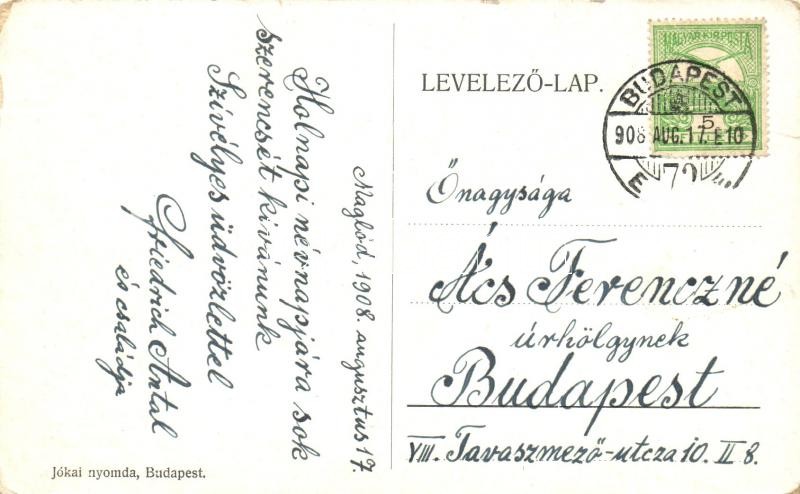 Maglód, 1908. augusztus 17.
Holnapi névnapjára sok
szerencsét kívánunk
Szívélyes üdvözlettel
Friedrich Antal
és családja
Jókai nyomda, Budapest.
LEVELEZŐ-LAP.
MAGYAR KIR. POSTA
5
BUDAPEST
908 AUG. 17. E10
72
Őnagysága
Ács Ferenczné
úrhölgynek
Budapest
VIII. Tavaszmező-utcza 10. II 8.